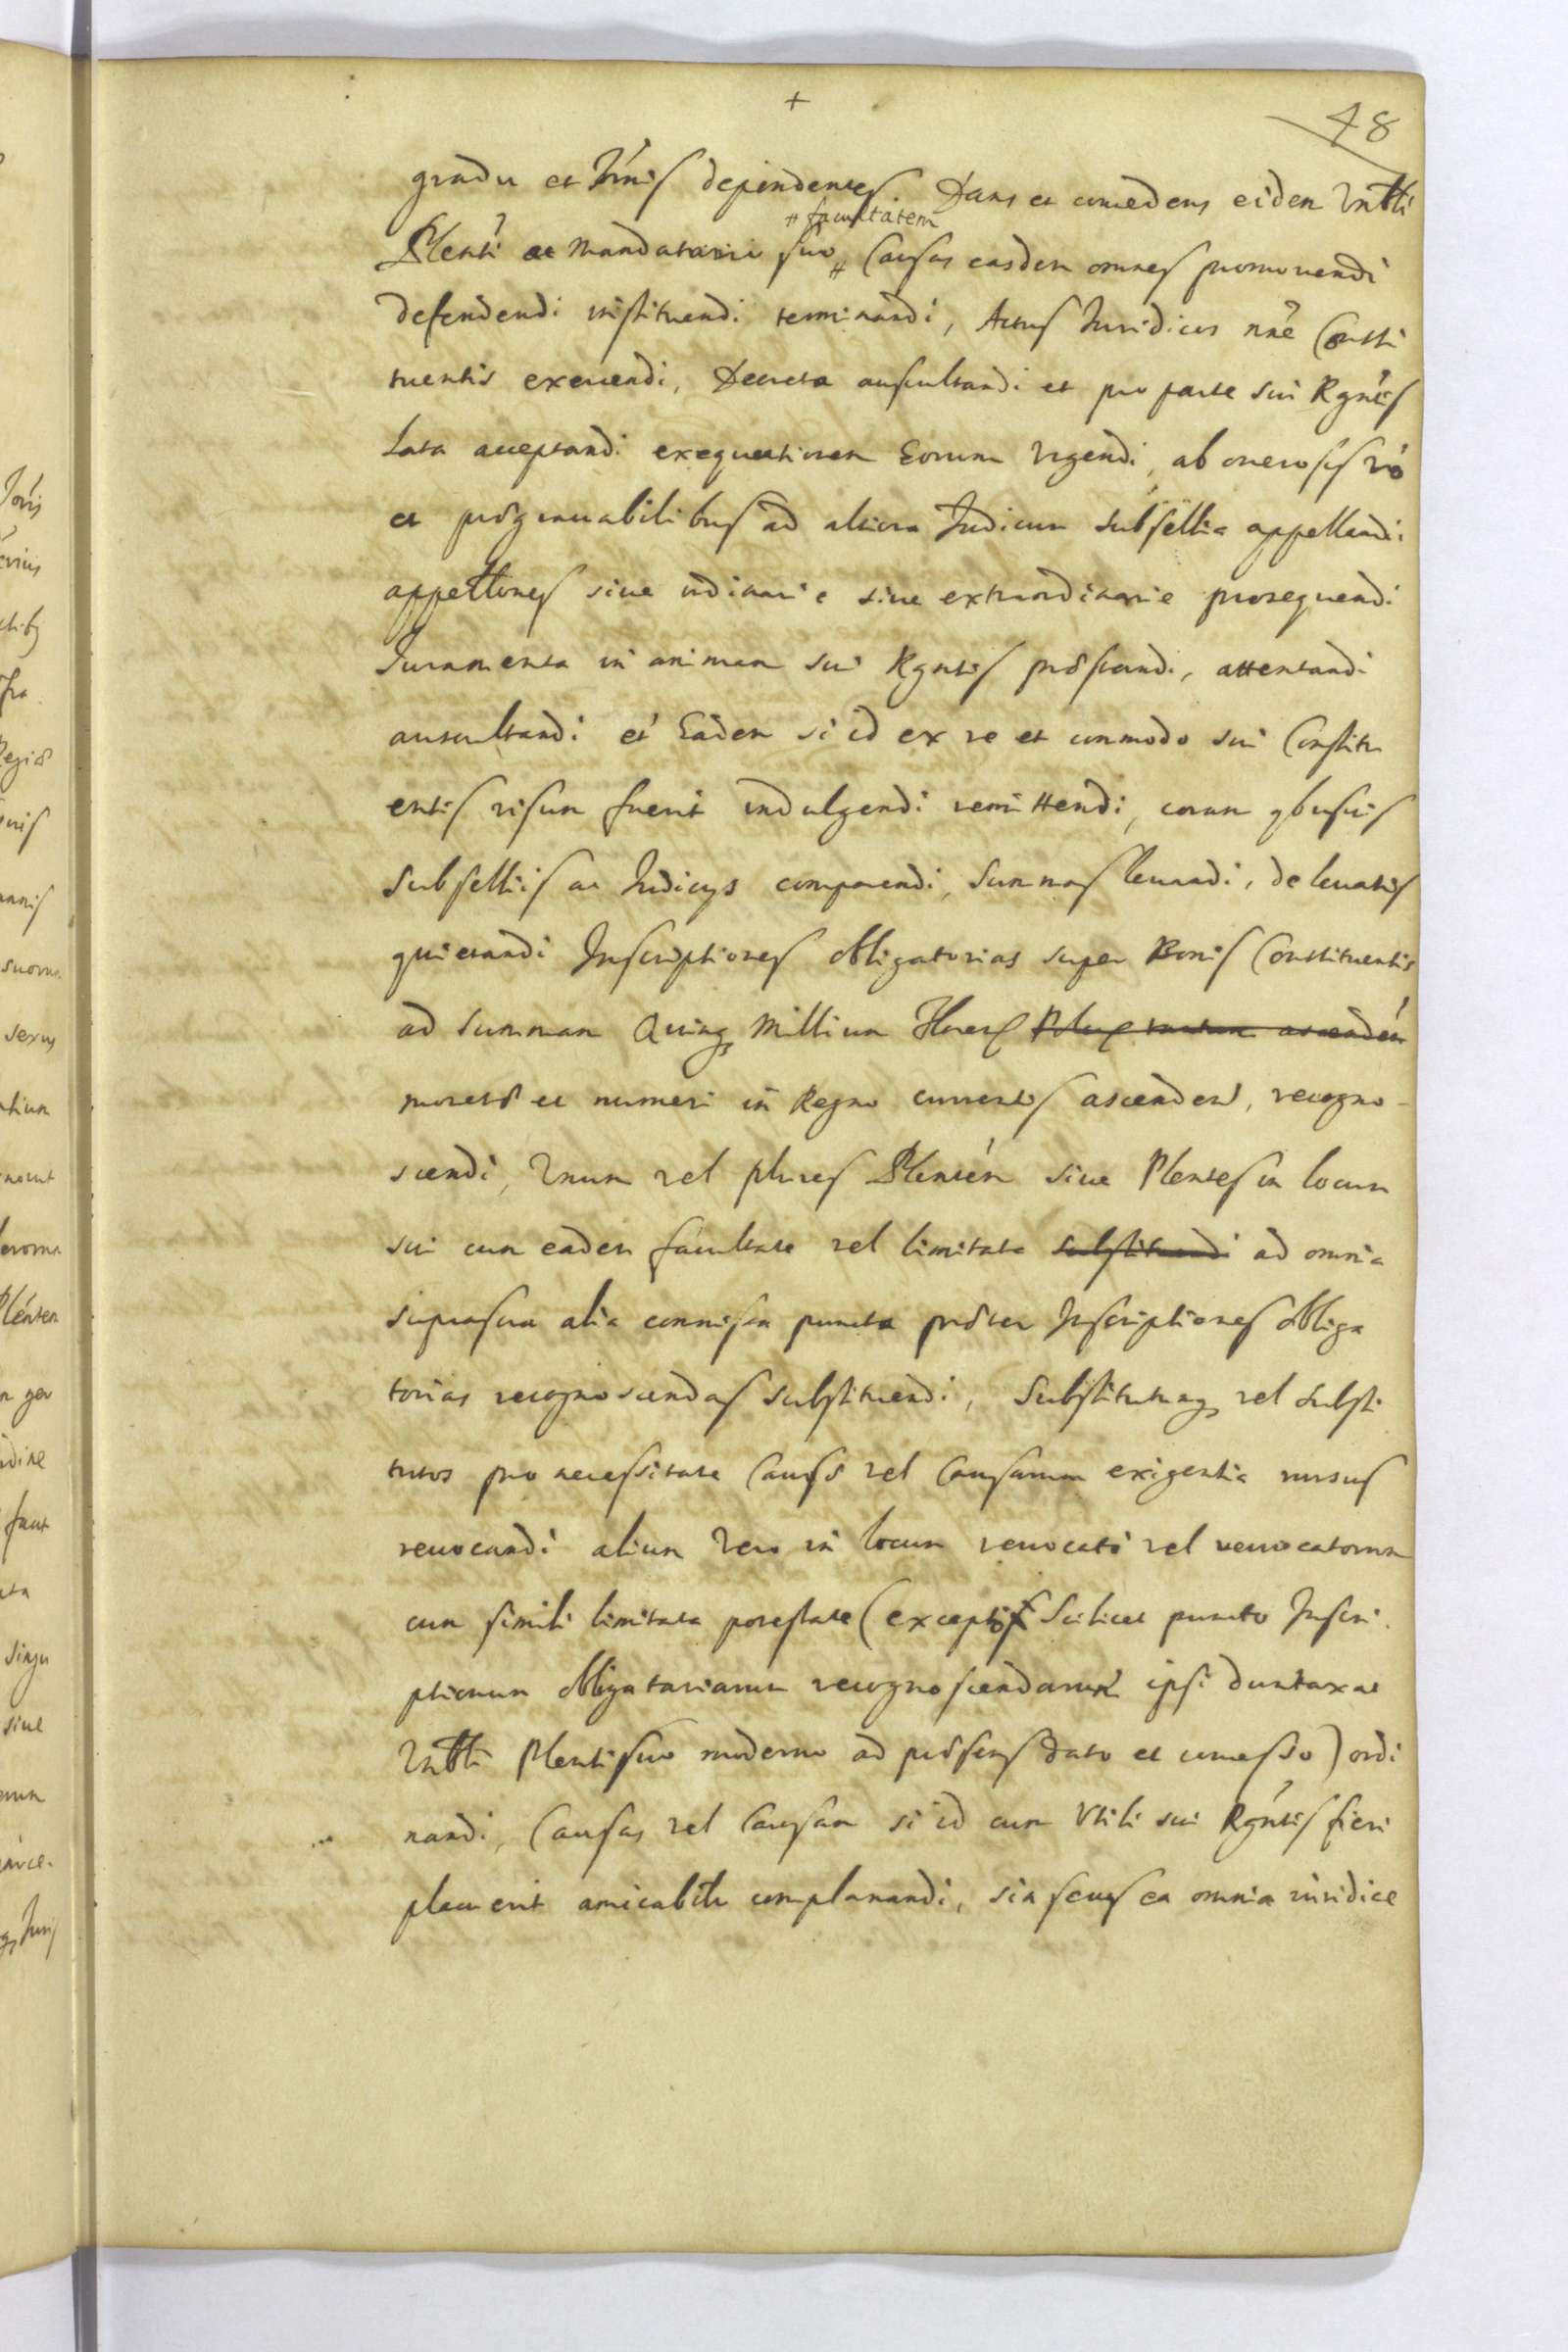 +
48
gradu et Trnis dependentes. Dans et concedens eidem Vntli
Plenti ac Mandatario suo # # facultatem Causas easdem omnes promovendi
defendendi instituendi terminandi, Actus Iuridicos nne Consti
tuentis exercendi, Decreta auscultandi et pro parte sui Rgntis
lata acceptandi exequutionem Eorum Vrgendi, ab onerosis vo
et prægrauabilibus ad altiora Iudiciorum Subsellia appellandi
appellones siue ordinarie siue extraordinarie prosequendi
Iuramenta in animam sui Rgntis præstandi, attentandi
auscultandi et Eadem si id ex re et commodo sui Constitu
entis visum fuerit indulgendi remittendi, coram qbusuis
Subselliis ac Iudicijs comparendi, Summas leuandi, de leuatis
quietandi Inscriptiones obligatorias super Bonis Constituentis
ad Summam Quinq Millium Floren Polon tantum ascenden
monetæ et numeri in Regno currentis ascenden, recogno-
scendi, Vnum vel plures Plentem siue Plentes in locum
sui cum eadem facultate vel limitata substituendi ad omnia
suprascra alia commissa puncta præter Inscriptiones obliga
torias recognoscendas substituendi, Substitutumq vel substi
tutos pro necessitate Causæ vel Causarum exigentia rursus
reuocandi alium Vero in locum reuocati vel reuocatorum
cum simili limitata potestate (excepto Scilicet puncto Inscri
ptionum obligatoriarum recognoscendarum ipsi duntaxat
Vntli Plenti suo moderno ad præsens dato et concesso) ordi
nandi, Causas vel Causam si id cum Vtili sui Rgntis fieri
placuerit amicabilr complanandi, sin secus ea omnia iuridice